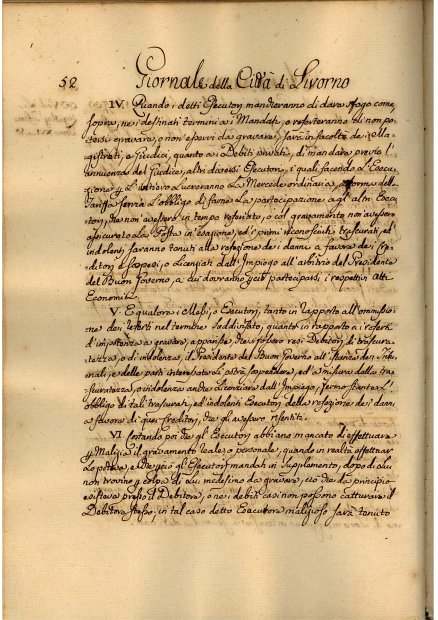 52 Giornale della Città di Livorno
IV. Quando i detti Esecutori mancheranno di dare sfogo come
sopra, nei destinati termini a i Mandati, o referiranno di non po-
tersi gravare, o non esservi da gravare, sarà in facoltà dei Ma-
gistrati, o Giudici, quanto a i Debiti privati, di mandare previo l'
annuenza del Giudice, altri diversi Esecutori, i quali facendo l'Esecu-
zione la Mercede ordinaria, a forma della
Tariffa senza l'obbligo di farne la partecipazione agl'altri Esecu-
tori, che non avessero in tempo referitato, o col gravamento non avessero
assicurato la Posta in esazione, ed i primi riconosciuti trascurati, ed
indolenti saranno tenuti alla refezione dei danni a favore dei Cre-
ditori e sospesi, o licenziati dall'Impiego all'arbitrio del Presidente
del Buon Governo, a cui dovranno parteciparsi i respettivi Atti
Economici.
V. E qualora i Messi, o Esecutori, tanto in rapporto all'ommissio-
ne dei referti nel termine suddivisato, quanto in rapporto a i referti
d'impotenza a gravare, apparisse, che si fossero resi Debitori, di trascura-
tezza, o di indolenza, il Presidente del Buon Governo all'istanza dei Tribu-
nali, e delle parti interessate Li potrà sospendere, ed a misura della tra-
scuratezza, o indolenza anche Licenziare dall'Impiego, fermo stante l'
obbligo di tali trascurati, ed indolenti Esecutori della refezione dei danni
a favore di quei Creditori, che gli avessero risentiti.
VI. Costando poi che gl'Esecutori abbiano mancato di effettuare
per Malizia il gravamento reale, o personale, quando in realtà effettuar
Lo poteva, e che perciò gl'Esecutori mandati in supplemento, dopo di lui
non trovino per colpa di Lui medesimo da gravare, ciò che da principio
esisteva presso il Debitore, o nei debiti casi non possono catturare il
Debitore stesso; in tal caso detto Esecutore malizioso sarà tenuto